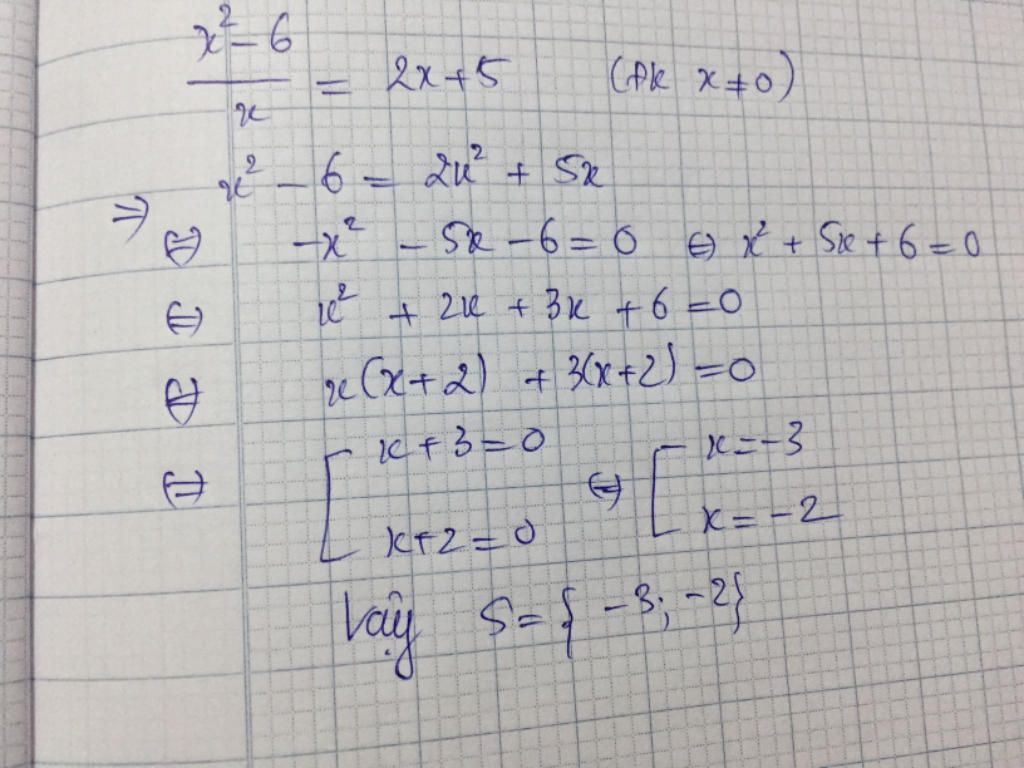 x² - 6 / x = 2x + 5 (ĐK x ≠ 0)
⇒ x² - 6 = 2x² + 5x
⇔ -x² - 5x - 6 = 0 ⇔ x² + 5x + 6 = 0
⇔ x² + 2x + 3x + 6 = 0
⇔ x(x + 2) + 3(x + 2) = 0
⇔ [ x + 3 = 0 ⇔ [ x = -3
x + 2 = 0 x = -2
Vậy S = { -3; -2}